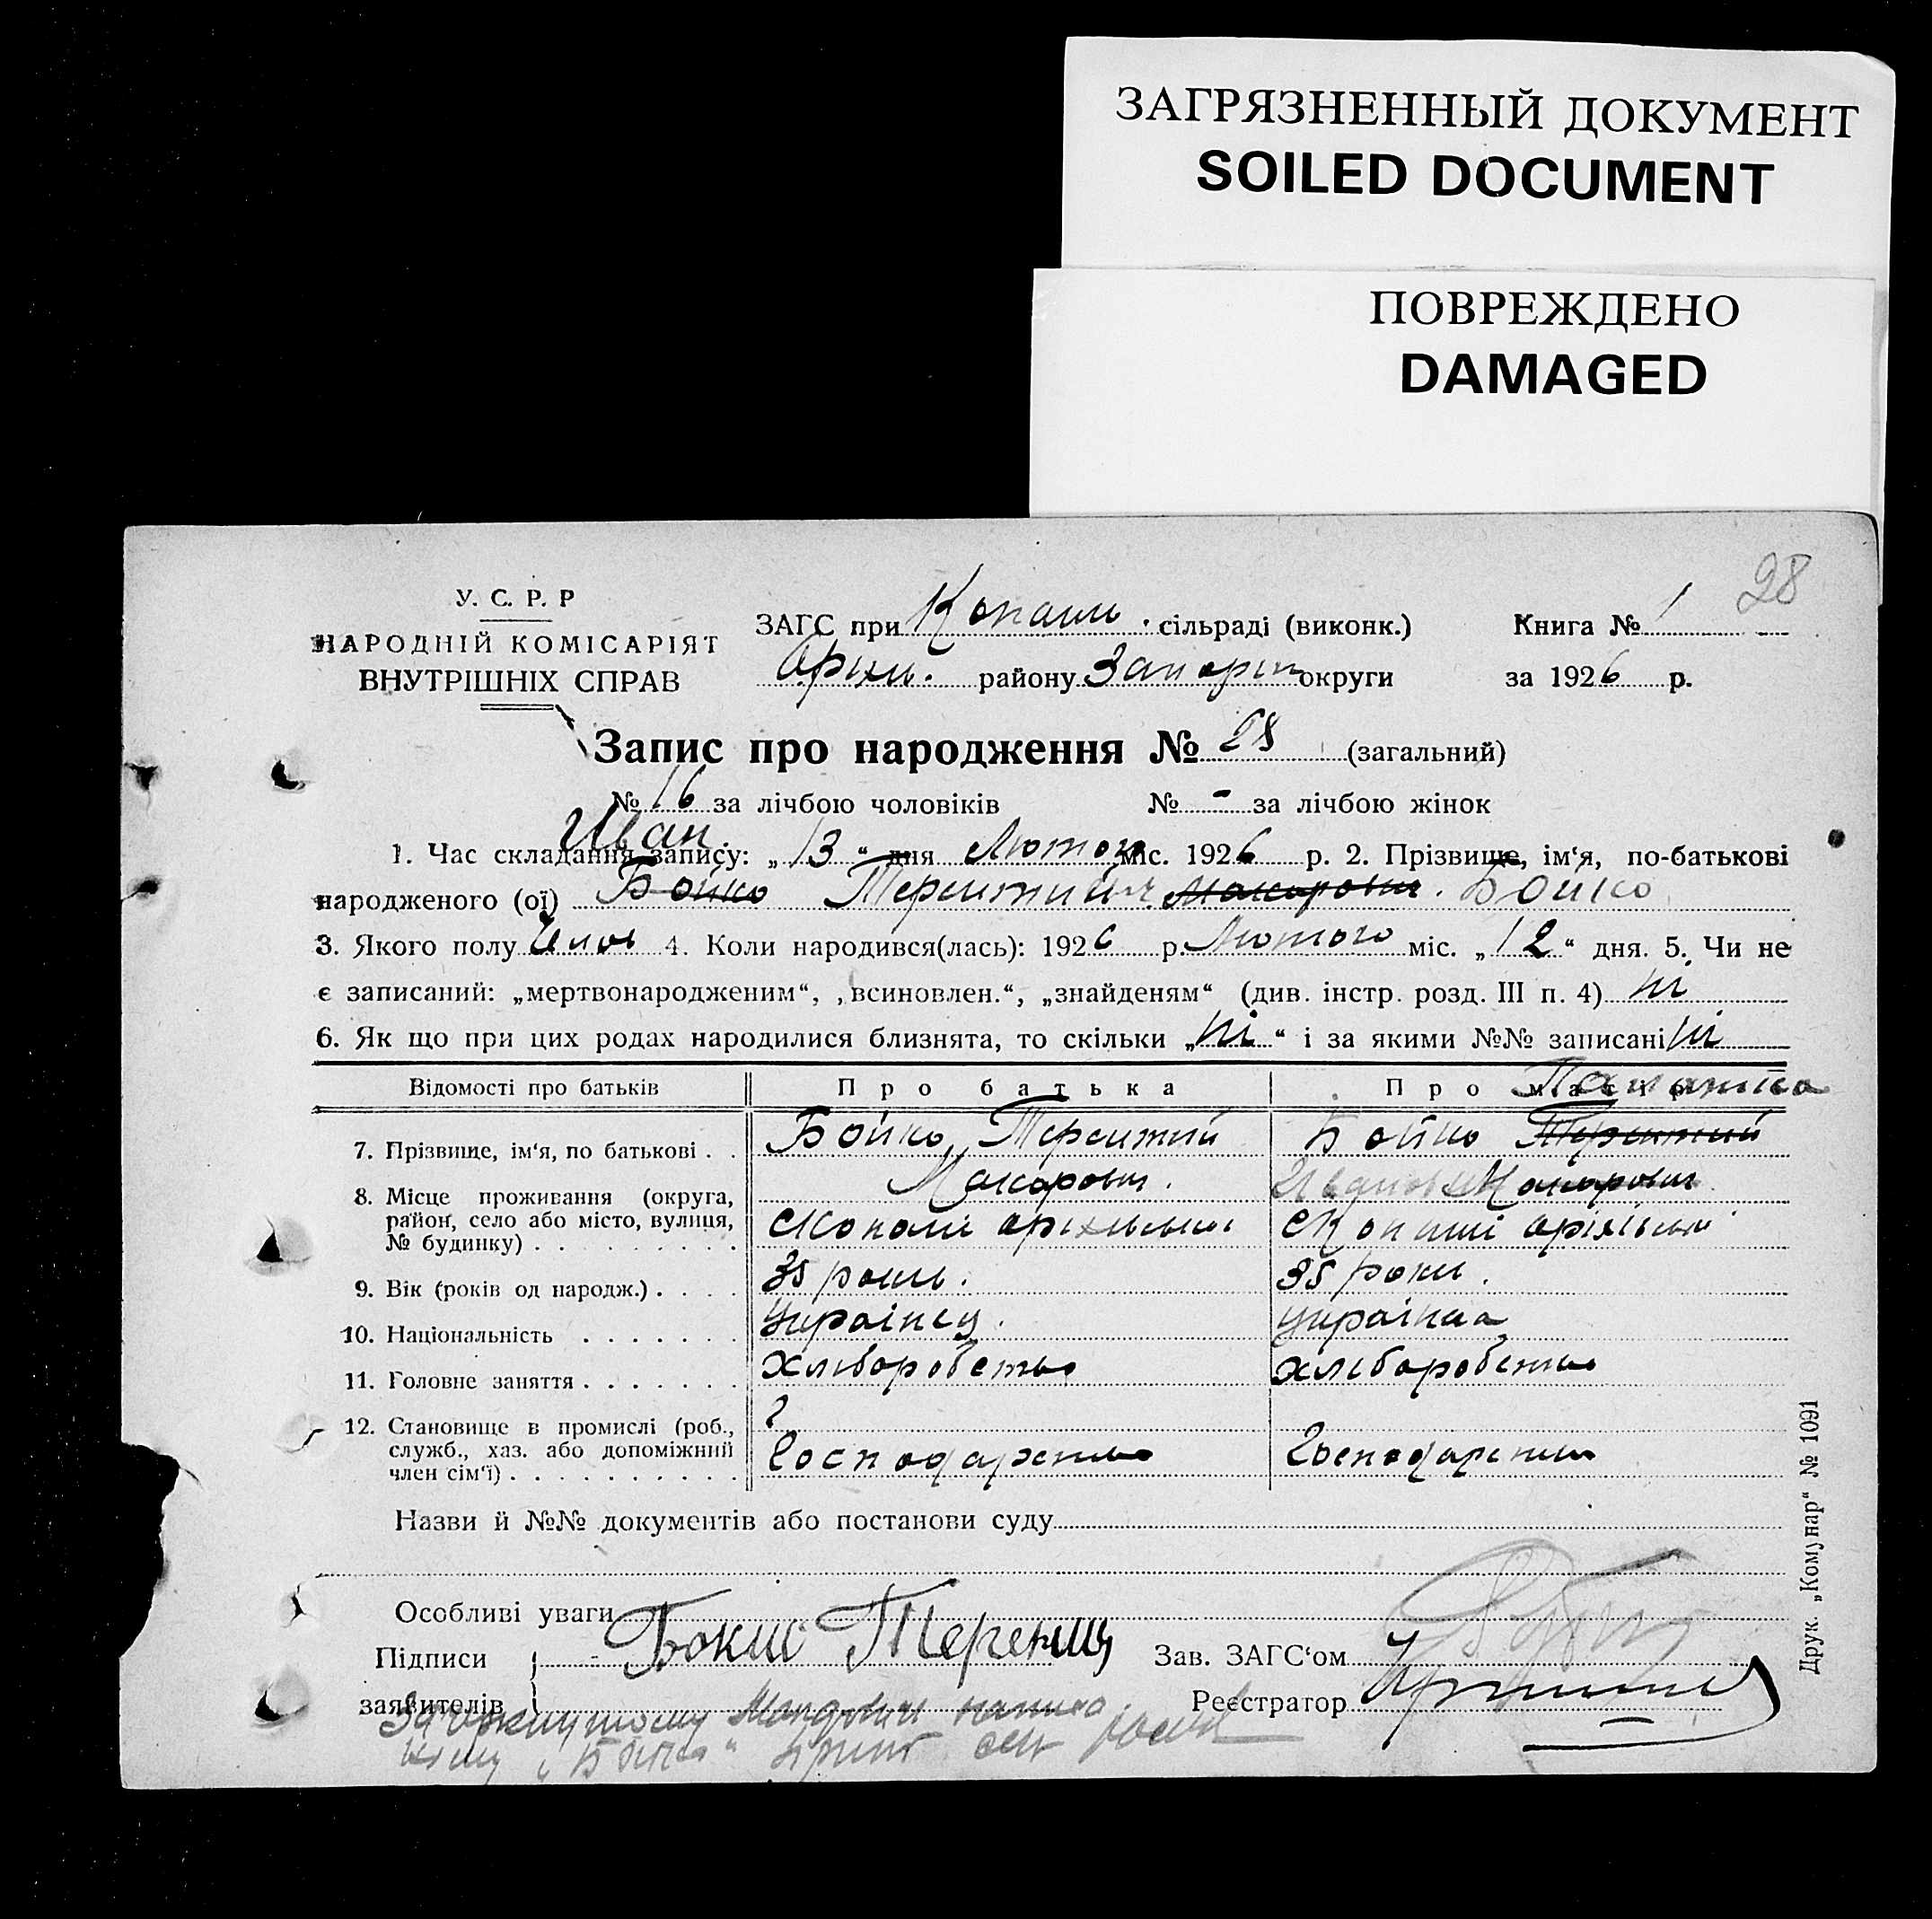 ЗАГРЯЗНЕННЫЙ ДОКУМЕНТ
SOILED DOCUMENT
ПОВРЕЖДЕНО
DAMAGED
28
У. С. Р. Р
НАРОДНІЙ КОМІСАРІЯТ
ВНУТРІШНІХ СПРАВ
ЗАГС при Копани. сільраді (виконк.)
Оріхи. району Запоріж округи
Книга № 1
за 1926 р.
Запис про народження № 28 (загальний)
№ 16 за лічбою чоловіків № - за лічбою жінок
Иван.
1. Час складання запису: „13“ дня Лютого міс. 1926 р. 2. Прізвище, ім‘я, по-батькові
народженого (ої) Бойко Терентийич Макарович. Бойко
3. Якого полу Чолов 4. Коли народився(лась): 1926 р. Лютого міс. „12“ дня. 5. Чи не
є записаний: „мертвонародженим“, „всиновлен.“, „знайденям“ (див. інстр. розд. III п. 4) ні
6. Як що при цих родах народилися близнята, то скільки „ні“ і за якими №№ записані ні
Відомості про батьків Про батька Про матір
7. Прізвище, ім‘я, по батькові . . Бойко Терентий Бойко Терентий
Макарович. Макарович
8. Місце проживання (округа,
район, село або місто, вулиця,
№ будинку) . . . . . . . . .
с Копані оріхівськ с Копані оріхівськ
9. Вік (років од народж.) . . . . 35 роки. 35 роки.
10. Національність . . . . . . . Українец. українка
11. Головне заняття . . . . . . . хліборобство хліборобство
12. Становище в промислі (роб.,
служб., хаз. або допоміжний
член сім‘ї) . . . . . . . . . .
Господарство Господарство
Назви й №№ документів або постанови суду
Особливі уваги
Підписи
заявителів
Терентий
Зав. ЗАГС‘ом
Реєстратор
Друк. „Комунар“ № 1091